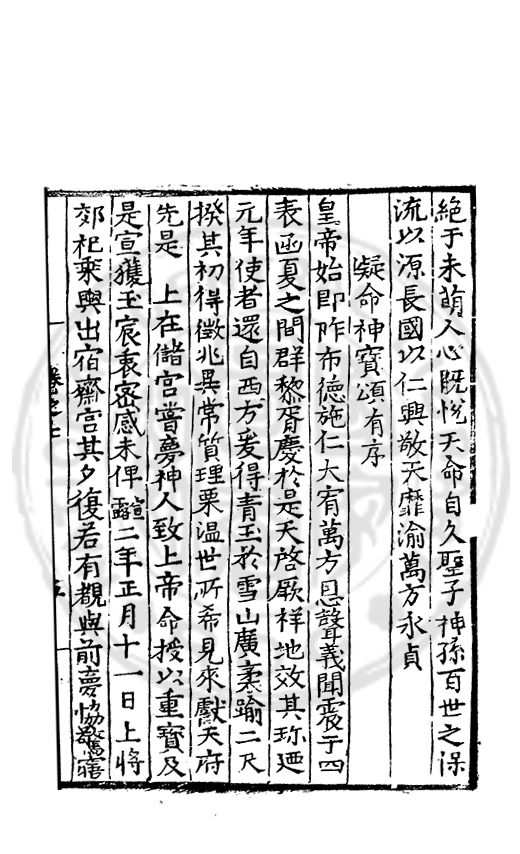 絕于未萌人心既悅天命自久聖子神孫百世之保
流以源長國以仁興敬天靡渝萬方永貞
凝命神寶頌有序
皇帝始即阼布德施仁大宥萬方恩聲義聞震于四
表函夏之間群黎胥慶於是天啓厥祥地效其珍迺
元年使者還自西方爰得青玉於雪山廣袤踰二尺
揆其初得徵兆異常質理栗温世所希見來獻天府
先是　上在儲宮嘗夢神人致上帝命授以重寶及
是宣獲玉宸衷密感未俾宣露二年正月十一日上將
郊祀乘輿出宿齋宮其夕復若有覩與前夢協驚寤